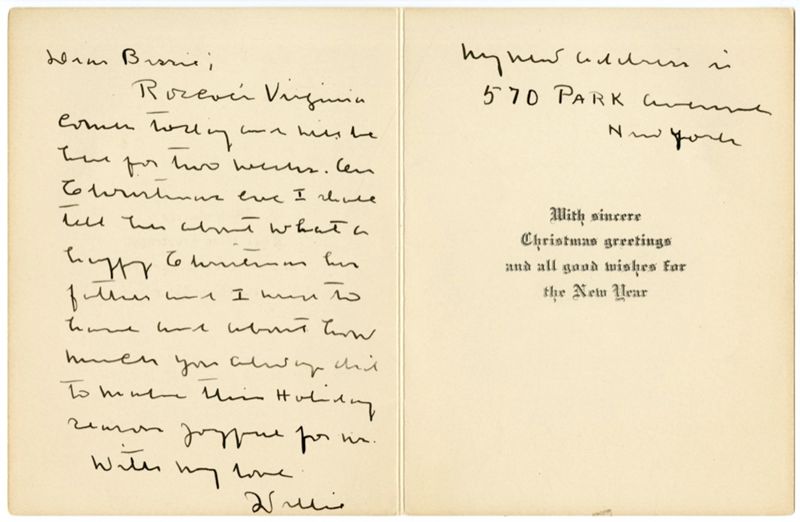 Dear Bessie;
Roscoe's Virginia
comes today and will be
here for two weeks. On
Christmas eve I shall
tell her about what a
happy Christmas her
father and I used to
have and about how
much you always did
to make this Holiday
season joyful for us.
With my love
Willie
My new address is
570 PARK avenue
New York
With sincere
Christmas greetings
and all good wishes for
the New Year